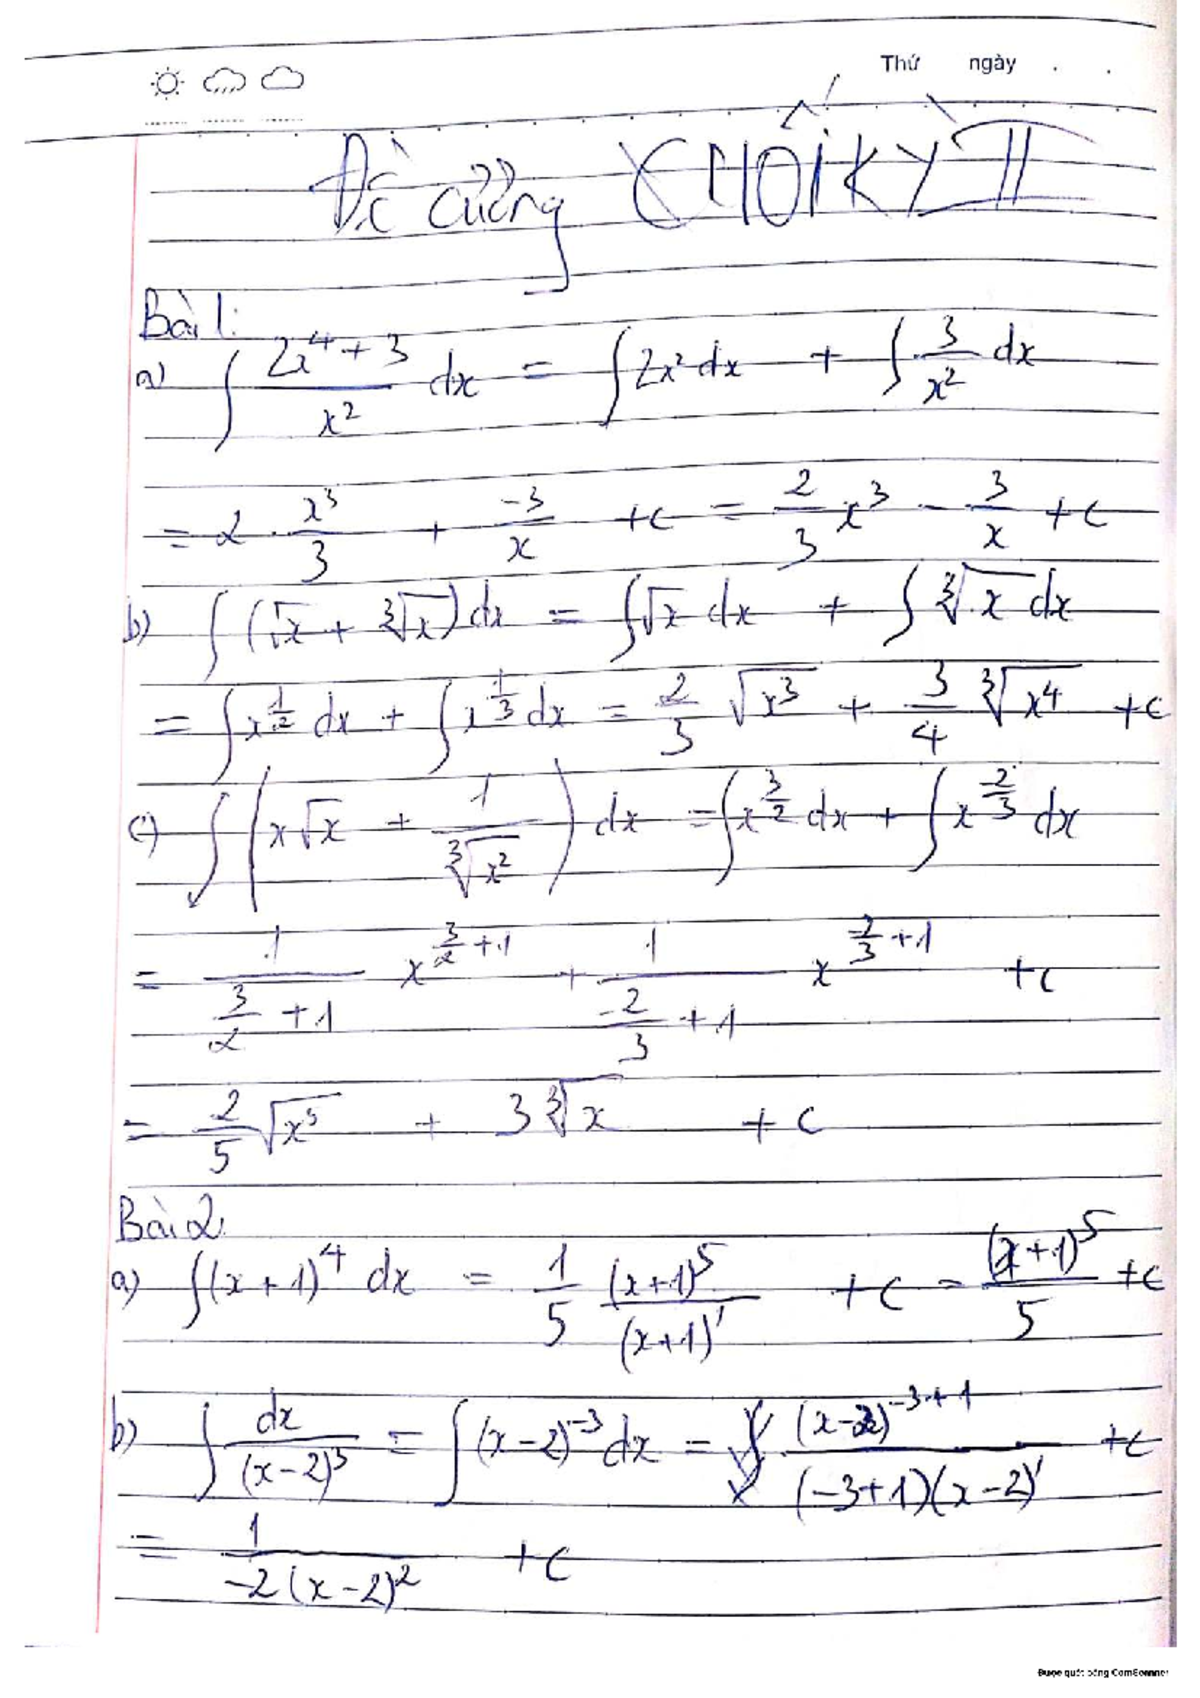 Thứ ngày
Đề cương CUỐI KỲ II
Bài 1:
a) ∫ (2x⁴ + 3)/x² dx = ∫ 2x² dx + ∫ 3/x² dx
= 2 · x³/3 + -3/x + c = 2/3 x³ - 3/x + c
b) ∫ (√x + ∛x) dx = ∫ √x dx + ∫ ∛x dx
= ∫ x^(1/2) dx + ∫ x^(1/3) dx = 2/3 √x³ + 3/4 ∛x⁴ + c
c) ∫ (x√x + 1/∛x²) dx = ∫ x^(3/2) dx + ∫ x^(-2/3) dx
= 1/(3/2 + 1) x^(3/2 + 1) + 1/(-2/3 + 1) x^(-2/3 + 1) + c
= 2/5 √x⁵ + 3 ∛x + c
Bài 2:
a) ∫ (x + 1)⁴ dx = 1/5 (x+1)⁵/(x+1)' + c = (x+1)⁵/5 + c
b) ∫ dx/(x-2)³ = ∫ (x-2)⁻³ dx = (x-2)^(-3+1)/((-3+1)(x-2)') + c
= 1/(-2(x-2)²) + c
Được quét bằng CamScanner